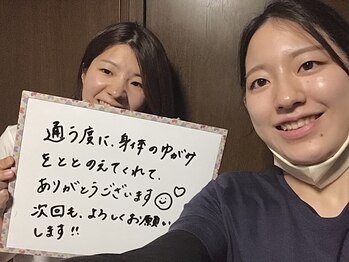 通う度に、身体のゆがみ
をととのえてくれて、
ありがとうございます
次回も、よろしくお願い
します!!